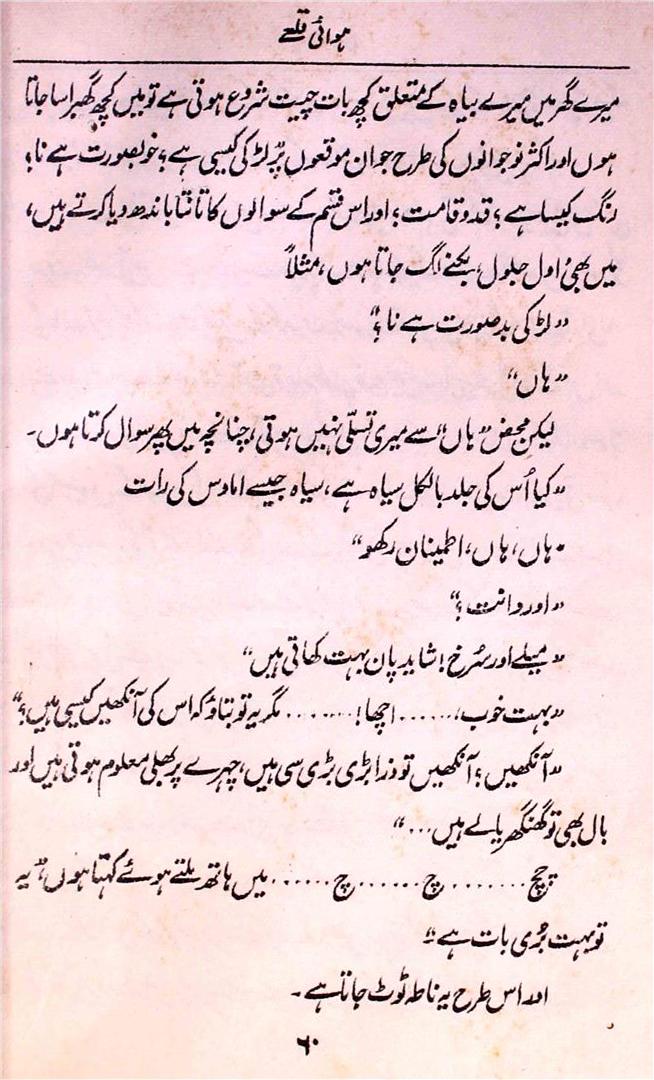 ہوائی قلعے
میرے گھر میں میرے بیاہ کے متعلق کچھ بات چیت شروع ہوتی ہے تو میں کچھ گھبرا سا جاتا
ہوں اور اکثر نوجوانوں کی طرح جو ان موقعوں پر لڑکی کیسی ہے؟ خوبصورت ہے نا؟
رنگ کیسا ہے؟ قد و قامت؟ اور اس قسم کے سوالوں کا تانتا باندھ دیا کرتے ہیں،
میں بھی اول جلول، بکنے لگ جاتا ہوں، مثلاً
”لڑکی بدصورت ہے نا؟“
”ہاں“
لیکن محض ”ہاں“ سے میری تسلّی نہیں ہوتی، چنانچہ میں پھر سوال کرتا ہوں۔
”کیا اُس کی جلد بالکل سیاہ ہے، سیاہ جیسے اماوس کی رات
”ہاں، ہاں، اطمینان رکھو“
”اور دانت؟“
”میلے اور سُرخ! شاید پان بہت کھاتی ہیں“
”بہت خوب،...... اچھا!....... مگر یہ تو بتاؤ کہ اس کی آنکھیں کیسی ہیں؟“
”آنکھیں؟ آنکھیں تو ذرا بڑی بڑی سی ہیں، چہرے پر بھلی معلوم ہوتی ہیں اور
بال بھی تو گھنگھریالے ہیں...“
چچ........ چ...... چ...... میں ہاتھ ملتے ہوئے کہتا ہوں، ”یہ
تو بہت بُری بات ہے“
اور اس طرح یہ ناطہ ٹوٹ جاتا ہے۔
۶۰